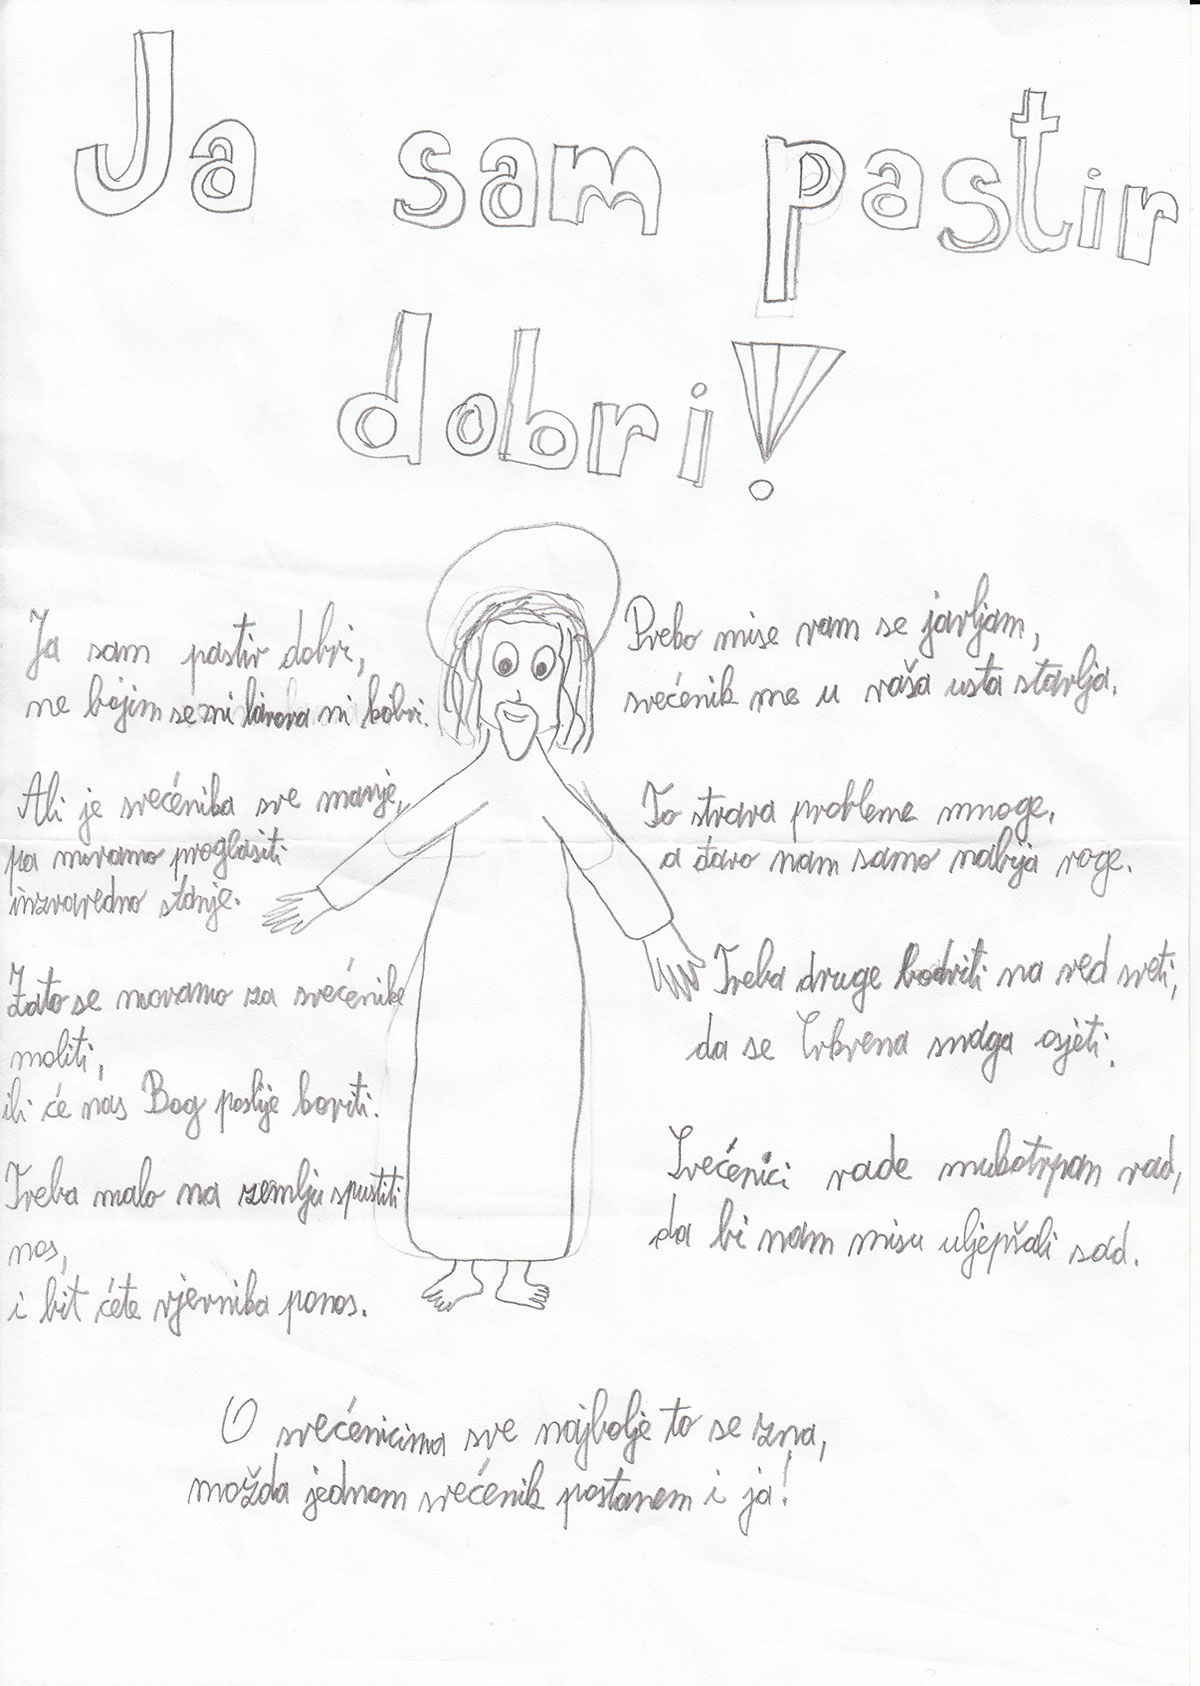 Ja sam pastir
dobri!
Ja sam pastir dobri,
ne bojim se ni lavova ni kobri.
Ali je svećenika sve manje,
pa moramo proglasiti
izvaredno stanje.
Zato se moramo za svećenike
moliti,
ili će nas Bog poslije boriti.
Treba malo na zemlju spustiti
nos,
i bit ćete vjernika ponos.
Preko mise vam se javljam,
svećenik me u vaša usta stavlja.
To stvara probleme mnoge,
a đavo nam samo nabija roge.
Treba druge bodriti na red sveti,
da se Crkvena snaga osjeti.
Svećenici rade mukotrpan rad,
da bi nam misu uljepšali sad.
O svećenicima sve najbolje to se zna,
možda jednom svećenik postanem i ja!